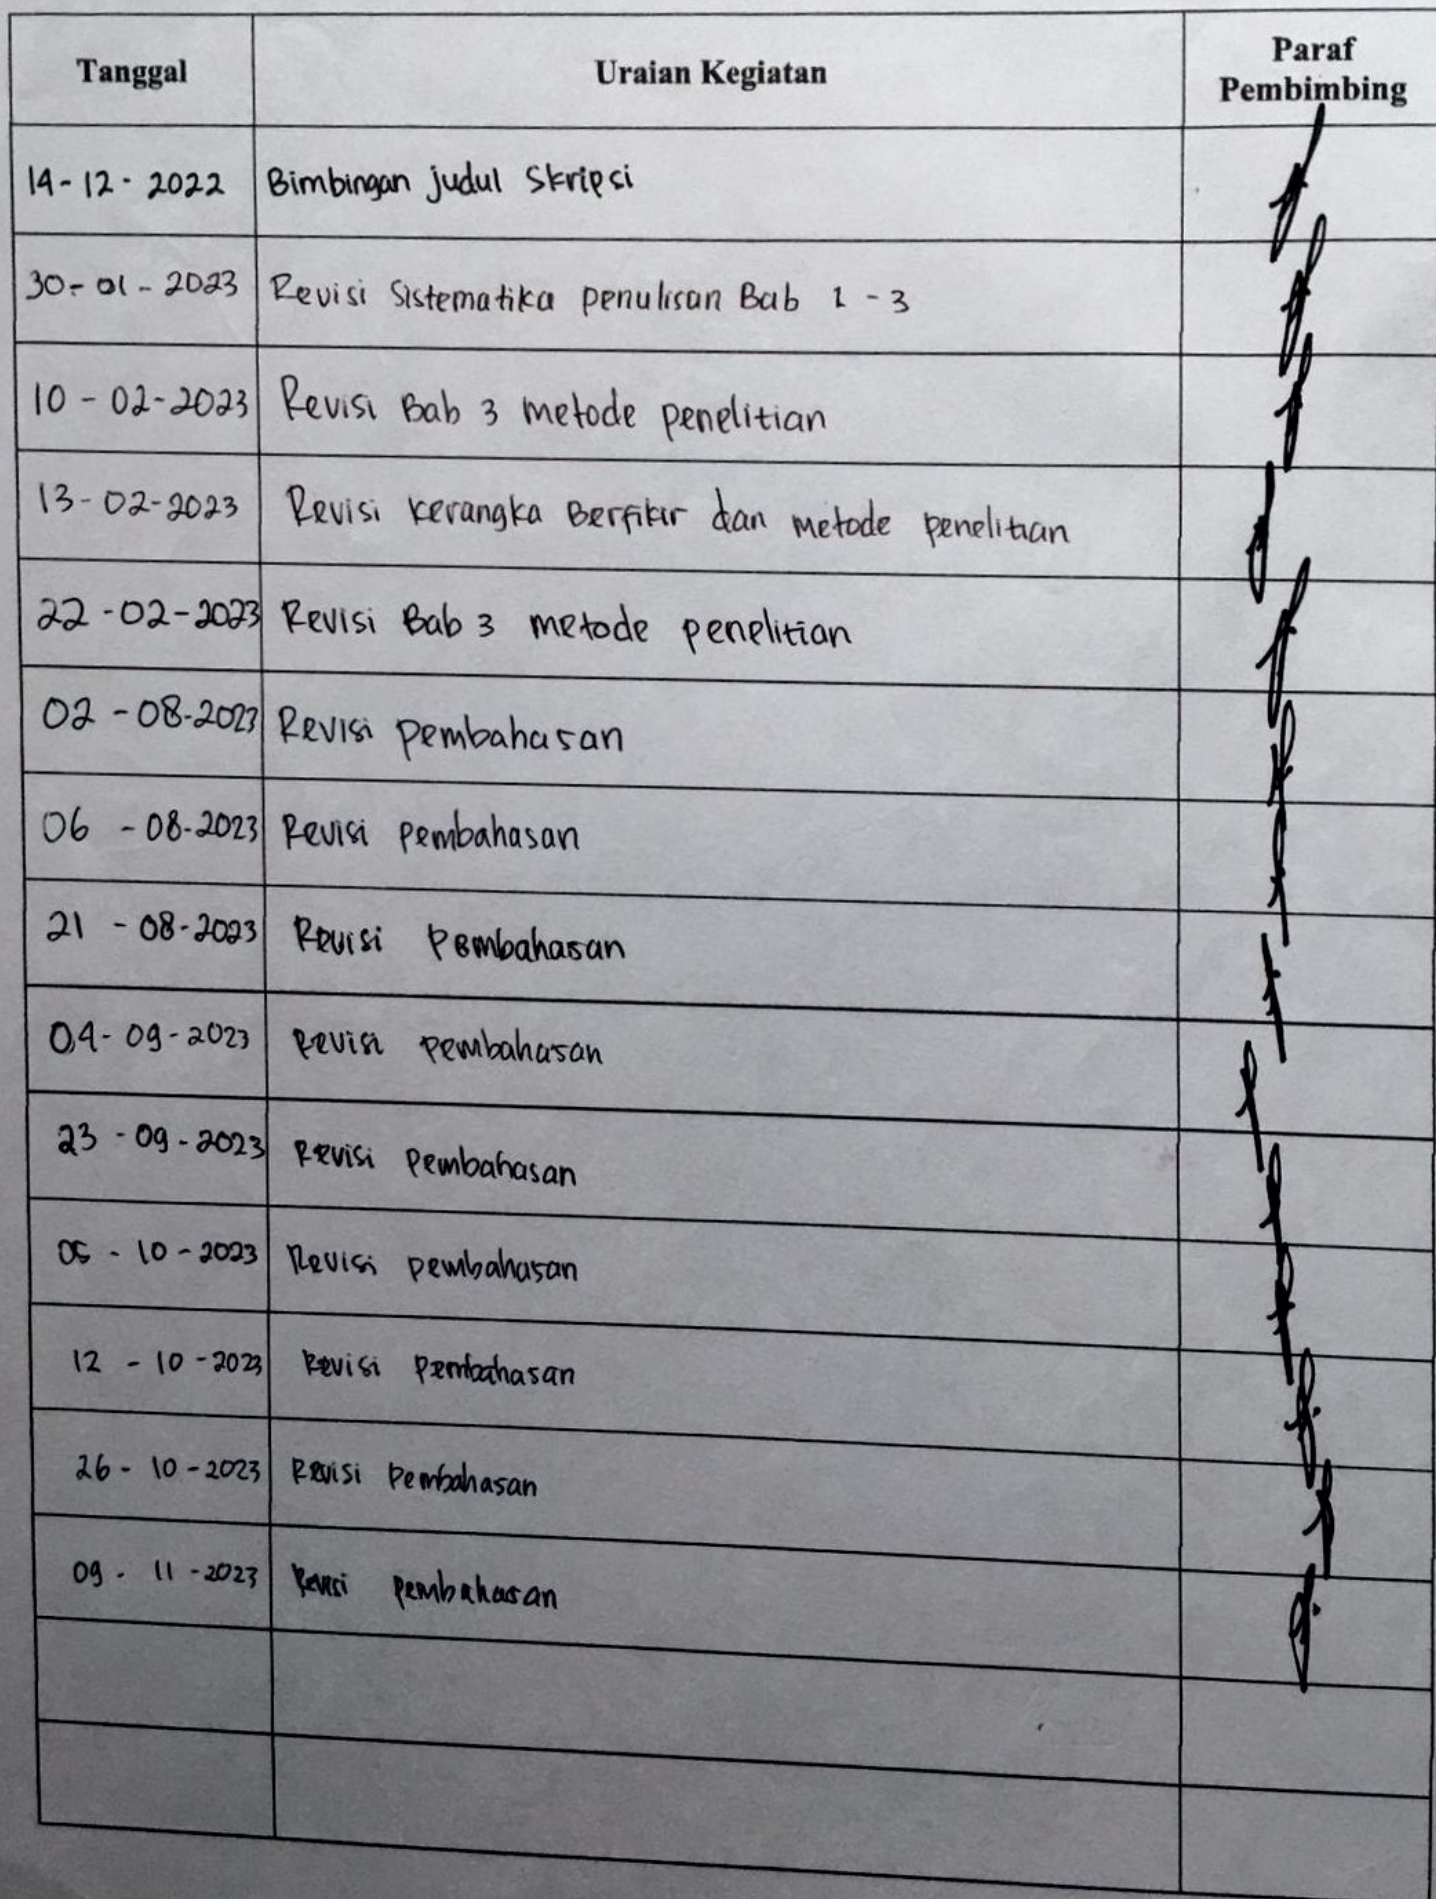 Tanggal Uraian Kegiatan Paraf Pembimbing
14-12-2022 Bimbingan judul Skripsi
30-01-2023 Revisi Sistematika penulisan Bab 1 - 3
10-02-2023 Revisi Bab 3 metode penelitian
13-02-2023 Revisi kerangka Berfikir dan metode penelitian
22-02-2023 Revisi Bab 3 metode penelitian
02-08-2023 Revisi pembahasan
06-08-2023 Revisi pembahasan
21-08-2023 Revisi Pembahasan
04-09-2023 Revisi pembahasan
23-09-2023 Revisi pembahasan
05-10-2023 Revisi pembahasan
12-10-2023 Revisi pembahasan
26-10-2023 Revisi Pembahasan
09-11-2023 Revisi pembahasan